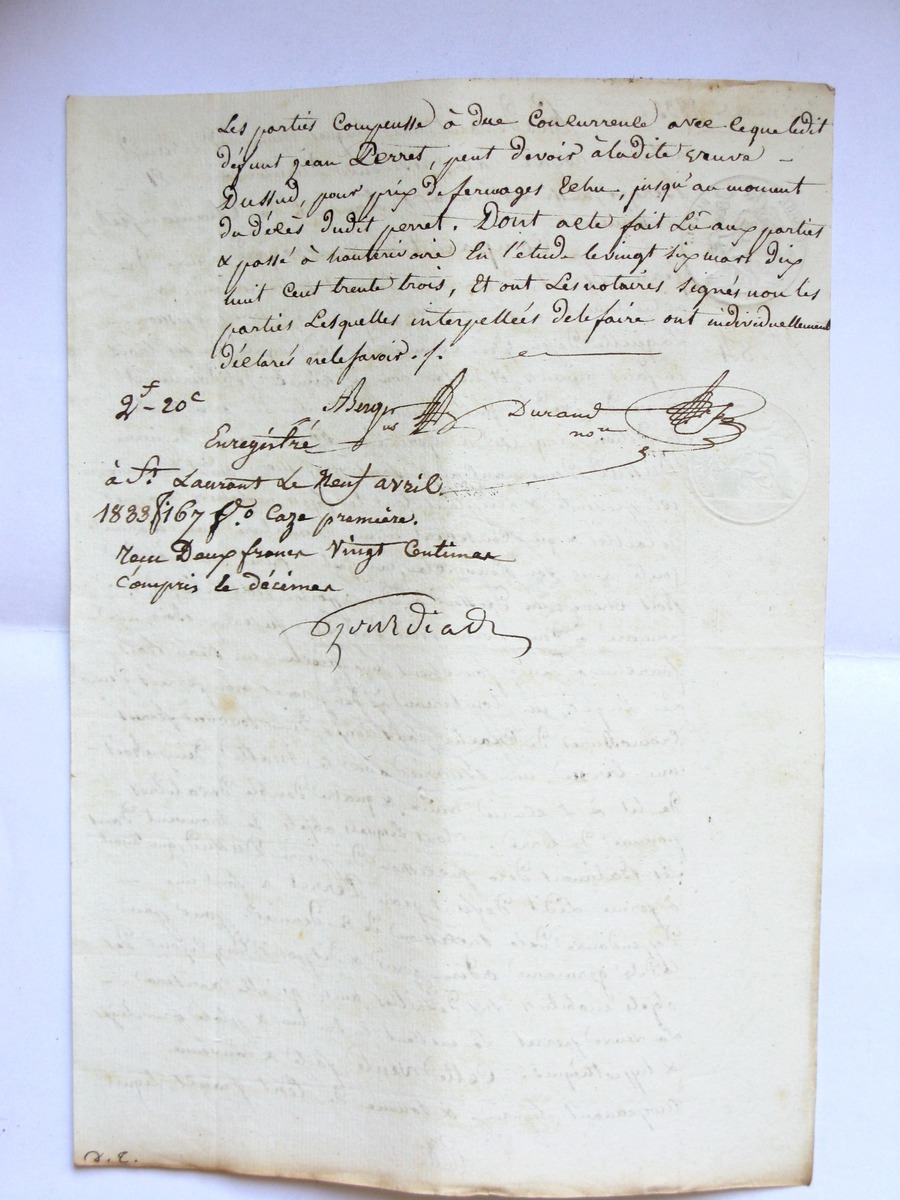 Les parties Compensse à due Concurrence avec ce que ledit
défunt jean Perret, peut devoir à ladite veuve -
Dussud, pour prix de fermages Echu, jusqu'au moment
du décès dudit perret. Dont acte fait Lû aux parties
& passé à hauterivoire En l'étude le vingt six mars dix
huit Cent trente trois, Et ont Les notaires Signés non les
parties Lesquelles interpellées de le faire ont individuellement
déclarés ne le savoir ./.
2f - 20c
Durand
Enregistré
à St. Laurant Le Neuf avril
1833 fo 167 Caze première.
reçu Deux francs Vingt Centimes
Compris le décimes